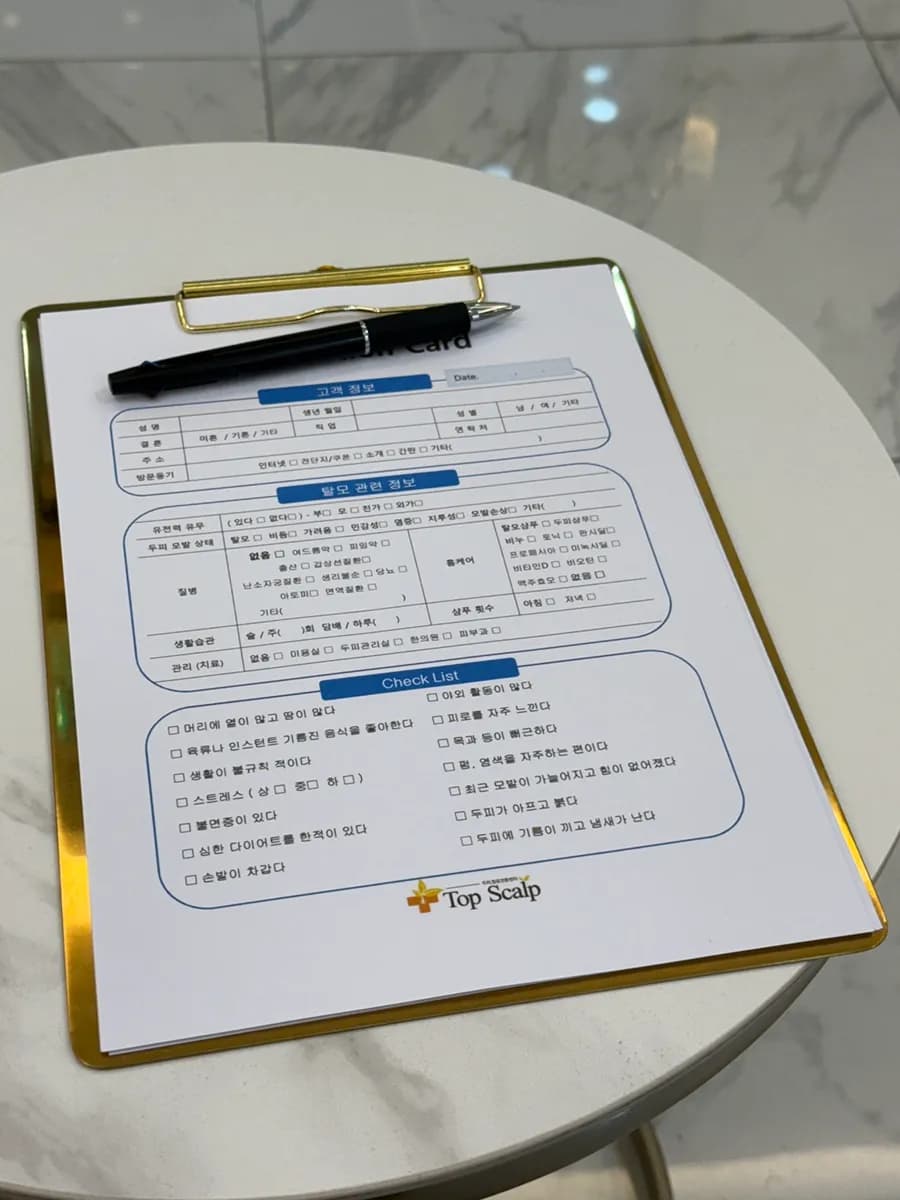 Card
고객 정보
Date.
성 명 생년 월일 성 별 남 / 여 / 기타
결 혼 미혼 / 기혼 / 기타 직 업 연 락 처
주 소
방문동기 인터넷 □ 전단지/쿠폰 □ 소개 □ 간판 □ 기타( )
탈모 관련 정보
유전력 유무 ( 있다 □ 없다□ ) - 부□ 모 □ 친가 □ 외가□
두피 모발 상태 탈모 □ 비듬□ 가려움 □ 민감성□ 염증□ 지루성□ 모발손상□ 기타( )
질병
없음 □ 여드름약 □ 피임약 □
출산 □ 갑상선질환□
난소자궁질환 □ 생리불순 □ 당뇨 □
아토피□ 면역질환 □
기타( )
홈케어
탈모샴푸 □ 두피샴푸□
비누 □ 토닉 □ 판시딜□
프로페시아 □ 미녹시딜□
비타민D □ 비오틴 □
맥주효모 □ 없음 □
생활습관 술 / 주( )회 담배 / 하루( ) 샴푸 횟수 아침 □ 저녁 □
관리 (치료) 없음 □ 미용실 □ 두피관리실 □ 한의원 □ 피부과 □
Check List
□ 머리에 열이 많고 땀이 많다
□ 육류나 인스턴트 기름진 음식을 좋아한다
□ 생활이 불규칙 적이다
□ 스트레스 ( 상 □ 중□ 하 □ )
□ 불면증이 있다
□ 심한 다이어트를 한적이 있다
□ 손발이 차갑다
□ 야외 활동이 많다
□ 피로를 자주 느낀다
□ 목과 등이 뻐근하다
□ 펌, 염색을 자주하는 편이다
□ 최근 모발이 가늘어지고 힘이 없어졌다
□ 두피가 아프고 붉다
□ 두피에 기름이 끼고 냄새가 난다
Top Scalp